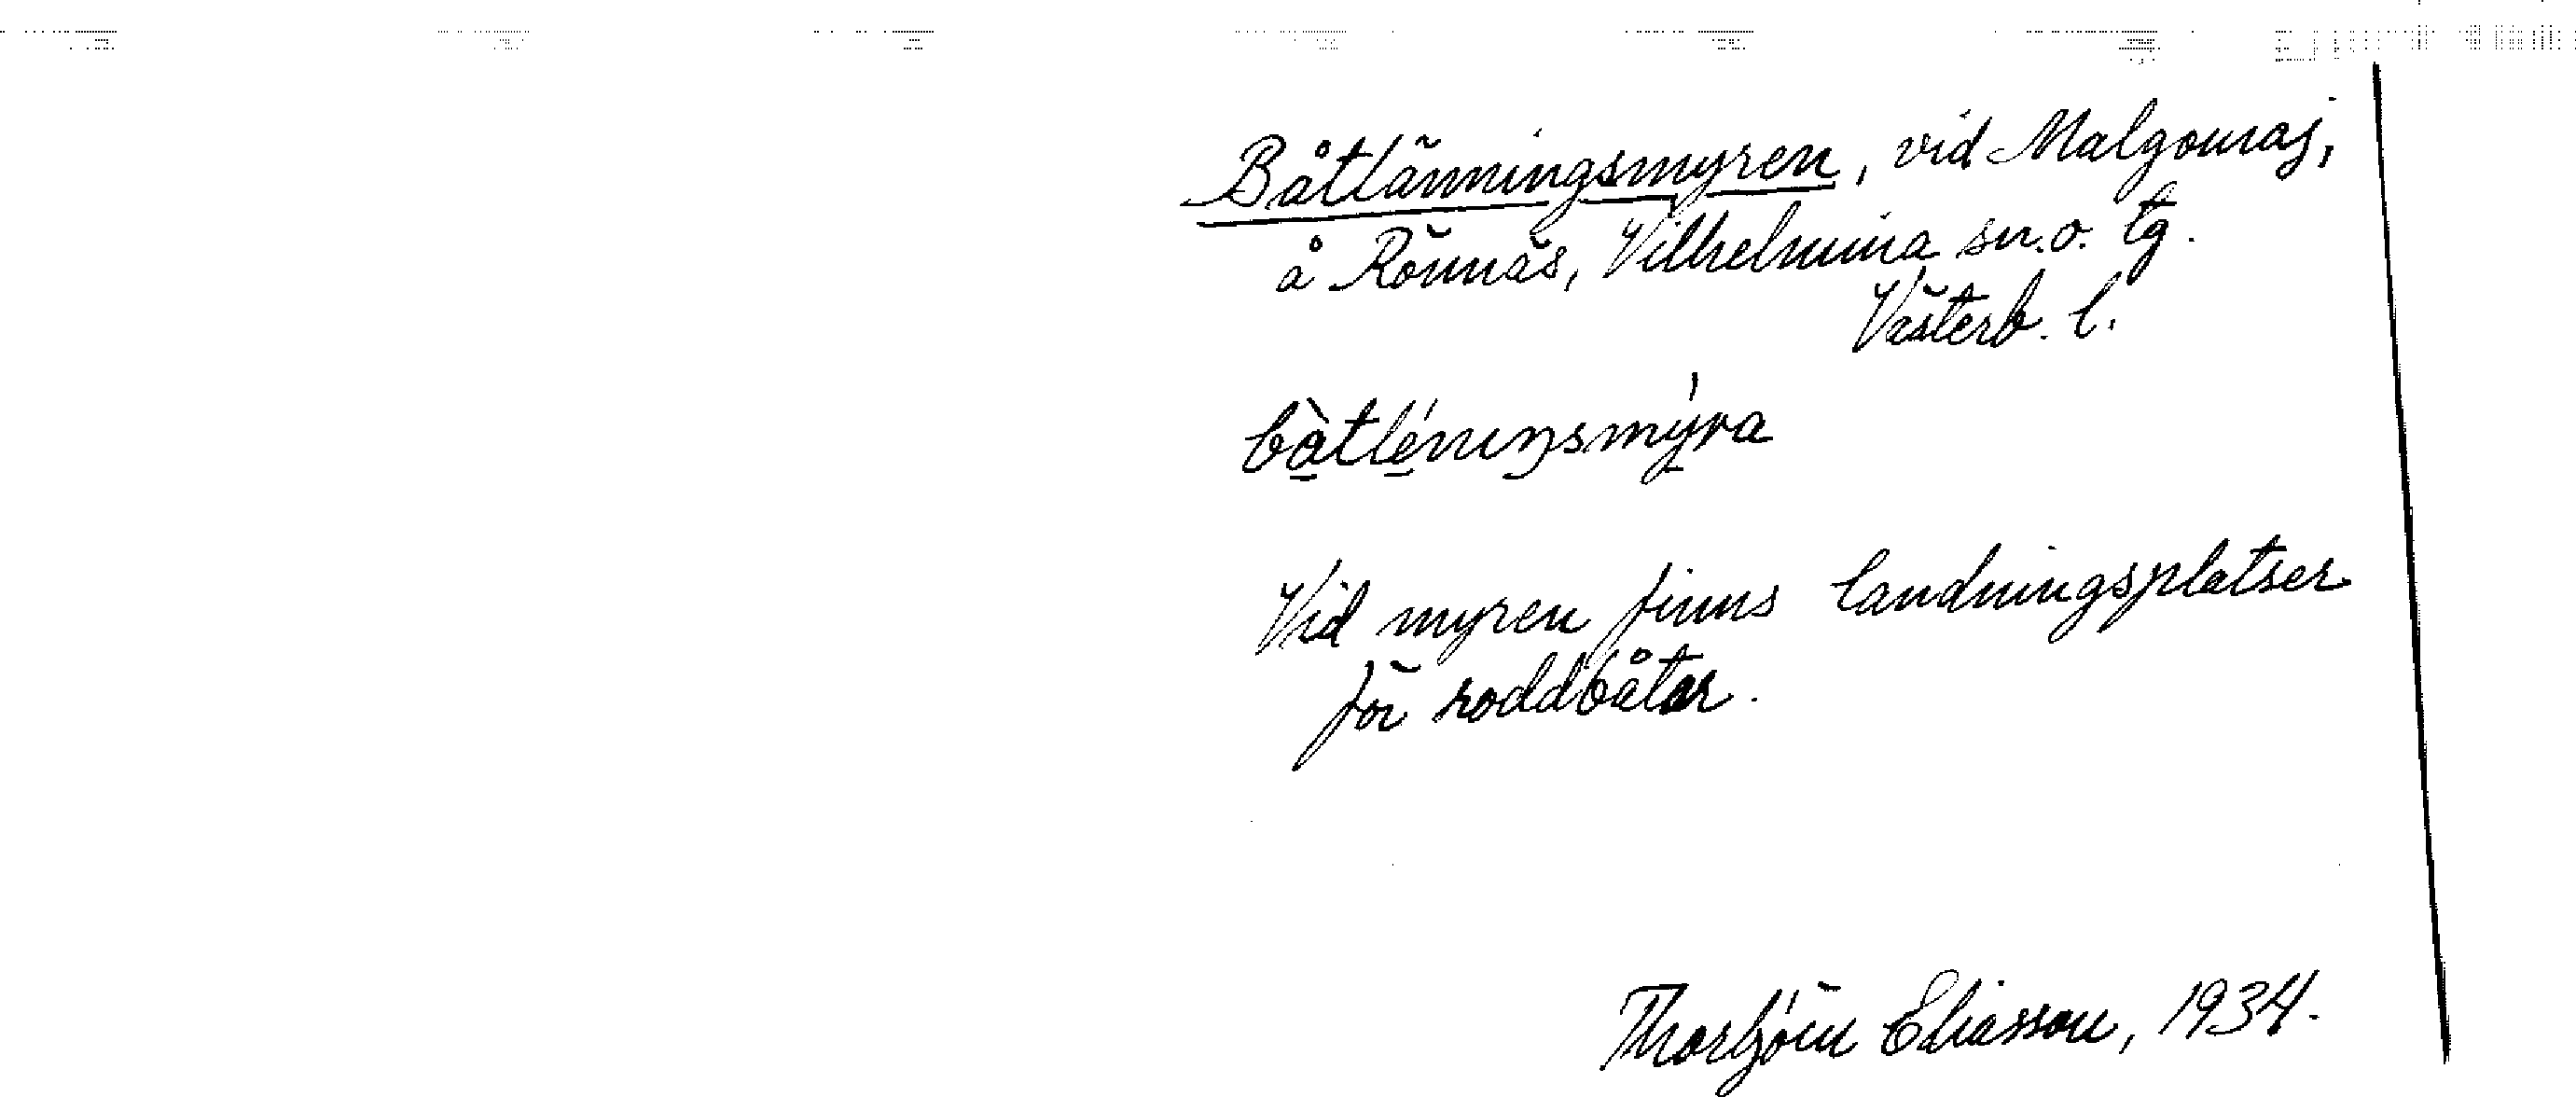 Båtlänningsmyren, vid Malgomaj,
å Rönnäs, Vilhelmina sn. o. tg.
Västerb. l.
bàtléniŋsmýra
Vid myren finns landningsplatser
för roddbåtar.
Thorbjörn Eliasson, 1934.